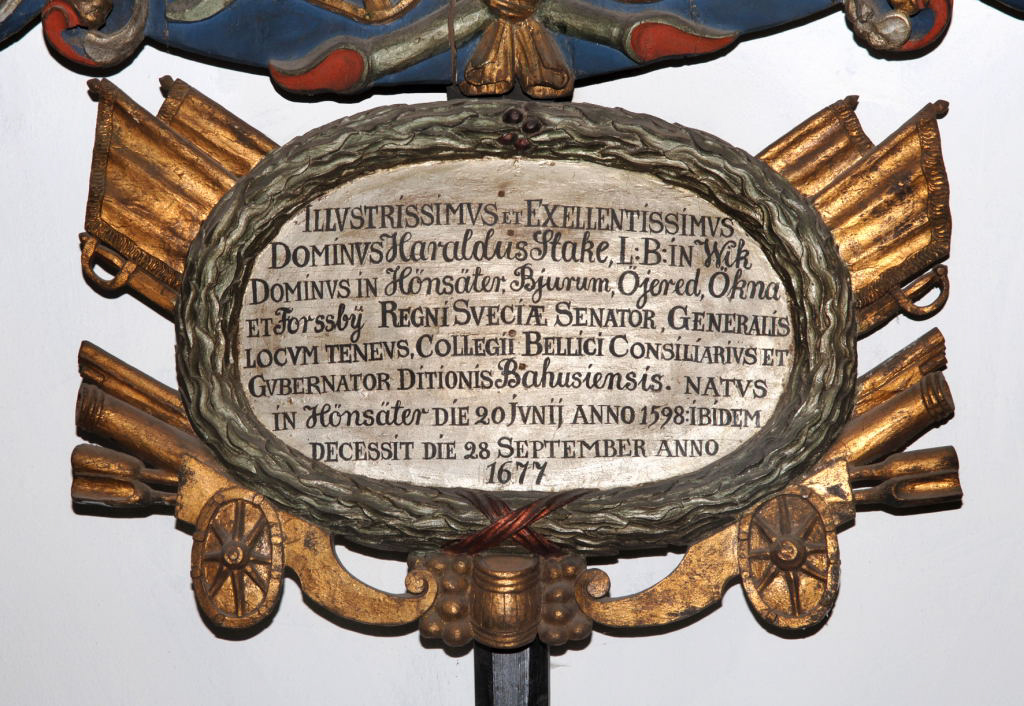 ILLVSTRISSIMVS ET EXELLENTISSIMVS
DOMINVS Haraldus Stake, L:B: IN Wik
DOMINVS IN Hönsäter, Bjurum, Öjered, Ökna
ET Forssbÿ REGNI SVECIÆ SENATOR, GENERALIS
LOCVM TENEVS, COLLEGII BELLICI CONSILIARIVS ET
GVBERNATOR DITIONIS Bahusiensis. NATVS
IN Hönsäter DIE 20 JVNIJ ANNO 1598·IBIDEM
DECESSIT DIE 28 SEPTEMBER ANNO
1677